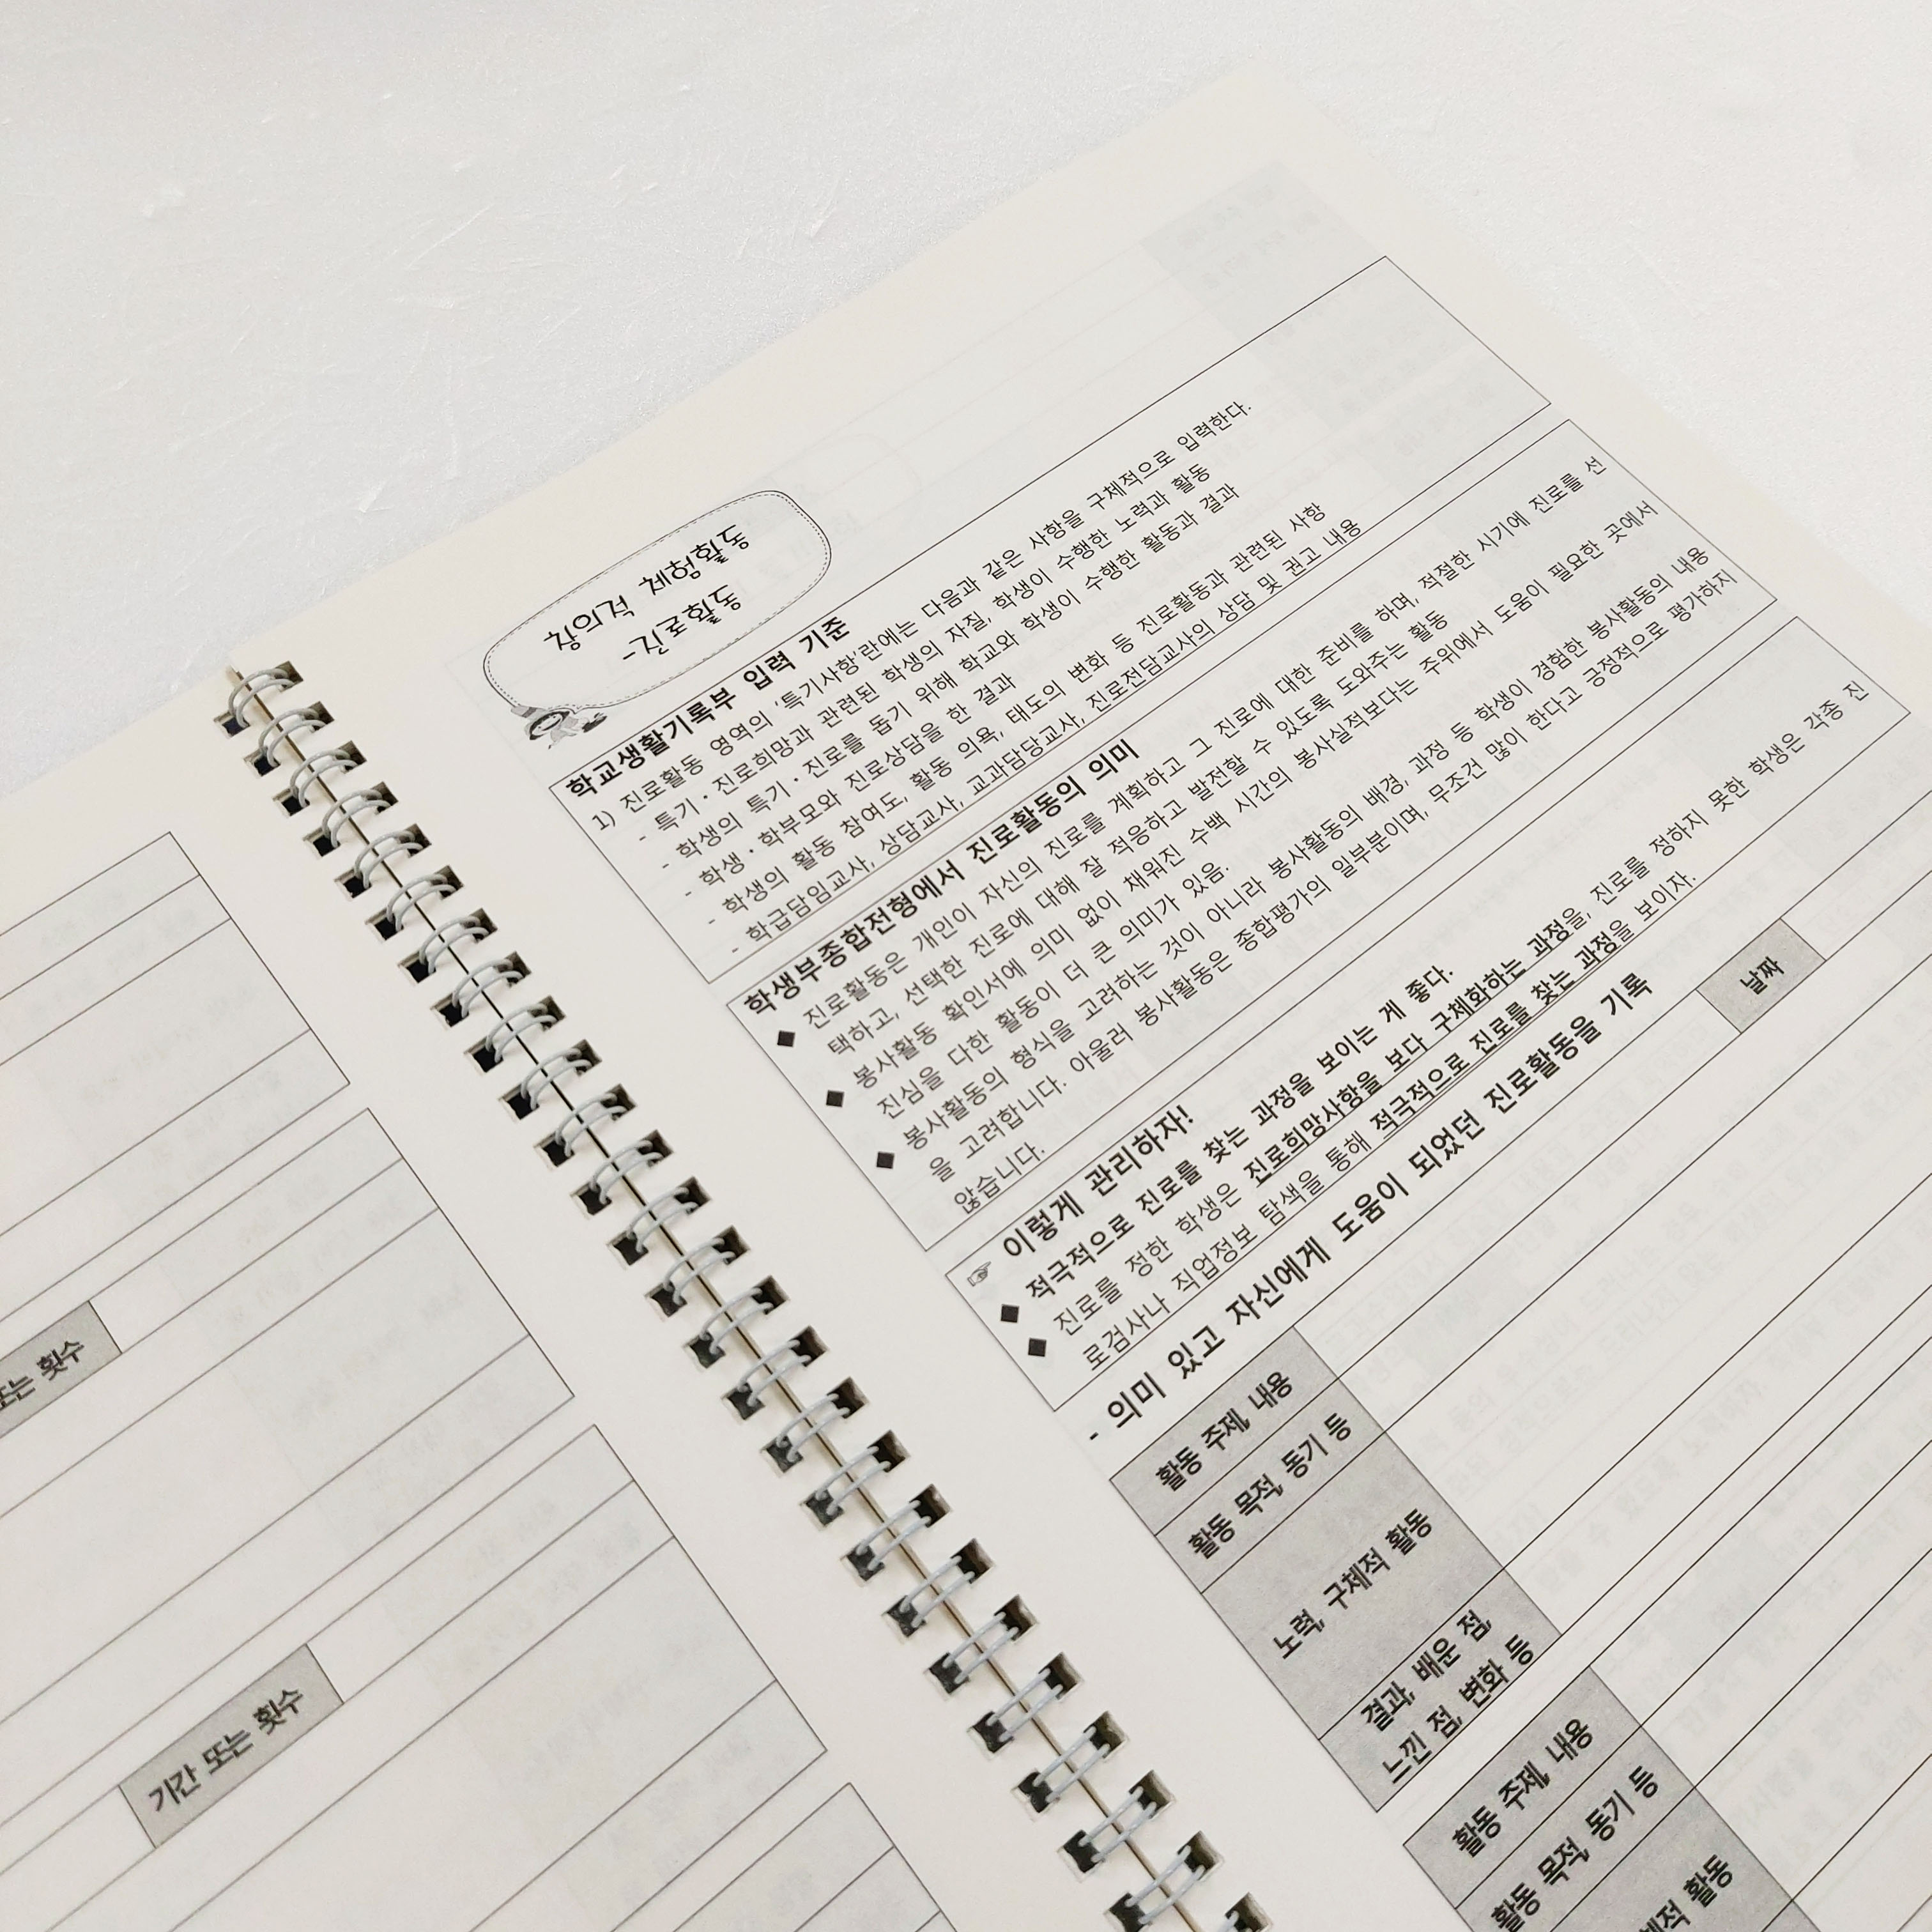 또는 횟수
기간 또는 횟수
창의적 체험활동
-진로활동
학교생활기록부 입력 기준
1) 진로활동 영역의 '특기사항'란에는 다음과 같은 사항을 구체적으로 입력한다.
- 특기·진로희망과 관련된 학생의 자질, 학생이 수행한 노력과 활동
- 학생의 특기·진로를 돕기 위해 학교와 학생이 수행한 활동과 결과
- 학생·학부모와 진로상담을 한 결과
- 학생의 활동 참여도, 활동 의욕, 태도의 변화 등 진로활동과 관련된 사항
- 학급담임교사, 상담교사, 교과담당교사, 진로전담교사의 상담 및 권고 내용
학생부종합전형에서 진로활동의 의미
◆ 진로활동은 개인이 자신의 진로를 계획하고 그 진로에 대한 준비를 하며, 적절한 시기에 진로를 선
택하고, 선택한 진로에 대해 잘 적응하고 발전할 수 있도록 도와주는 활동
◆ 봉사활동 확인서에 의미 없이 채워진 수백 시간의 봉사실적보다는 주위에서 도움이 필요한 곳에서
진심을 다한 활동이 더 큰 의미가 있음.
◆ 봉사활동의 형식을 고려하는 것이 아니라 봉사활동의 배경, 과정 등 학생이 경험한 봉사활동의 내용
을 고려합니다. 아울러 봉사활동은 종합평가의 일부분이며, 무조건 많이 한다고 긍정적으로 평가하지
않습니다.
☞ 이렇게 관리하자!
◆ 적극적으로 진로를 찾는 과정을 보이는 게 좋다.
◆ 진로를 정한 학생은 진로희망사항을 보다 구체화하는 과정을, 진로를 정하지 못한 학생은 각종 진
로검사나 직업정보 탐색을 통해 적극적으로 진로를 찾는 과정을 보이자.
- 의미 있고 자신에게 도움이 되었던 진로활동을 기록
활동 주제, 내용
날짜
활동 목적, 동기 등
노력, 구체적 활동
결과, 배운 점,
느낀 점, 변화 등
활동 주제, 내용
활동 목적, 동기 등
체적 활동